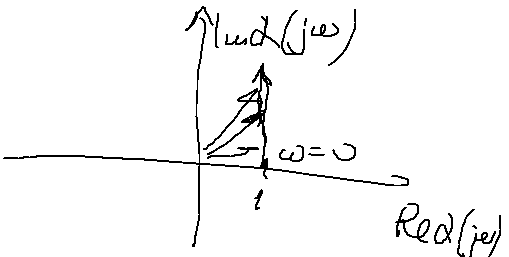 Im α(jω)
ω = 0
1
Re α(jω)